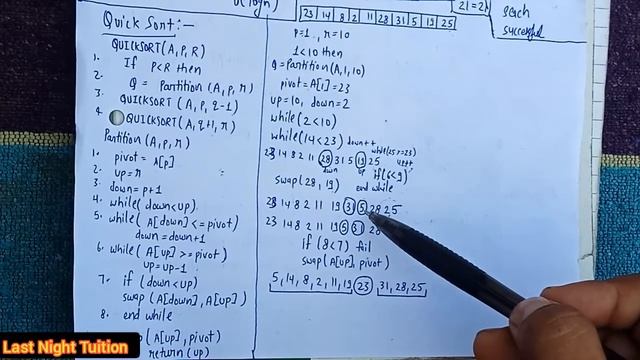 23 14 8 2 11 28 31 5 19 25
21=2
seach
successful
Quick Sort:-
QUICKSORT(A,P,R)
1. If P<R then
2. Q = Partition(A,p,r)
3. QUICKSORT(A,p,q-1)
4. QUICKSORT(A,q+1,r)
Partition(A,p,r)
1. pivot = A[p]
2. up=r
3. down=p+1
4. while(down<up)
5. while(A[down]<=pivot)
down=down+1
6. while(A[up]>=pivot)
up=up-1
7. if (down<up)
swap (A[down],A[up])
8. end while
(A[up],pivot)
return(up)
P=1, r=10
1<10 then
Q=Partition(A,1,10)
pivot=A[1]=23
up=10, down=2
while(2<10)
while(14<23) down++
while(25>=23)
23 14 8 2 11 28 31 5 19 25
down up if(6<9)
swap(28,19) end while
23 14 8 2 11 19 31 5 28 25
23 14 8 2 11 19 5 31 28
if (8<7) fail
swap(A[up],pivot)
5,14,8,2,11,19 23 31,28,25,
Last Night Tuition